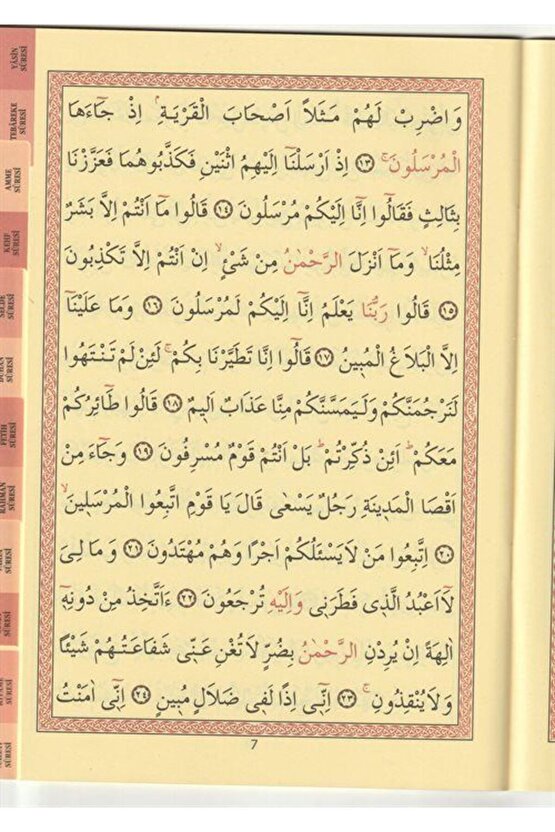 وَاضْرِبْ لَهُمْ مَثَلًا اَصْحَابَ الْقَرْيَةِۢ اِذْ جَٓاءَهَا
الْمُرْسَلُونَۚ ﴿١٣﴾ اِذْ اَرْسَلْنَٓا اِلَيْهِمُ اثْنَيْنِ فَكَذَّبُوهُمَا فَعَزَّزْنَا
بِثَالِثٍ فَقَالُٓوا اِنَّٓا اِلَيْكُمْ مُرْسَلُونَ ﴿١٤﴾ قَالُوا مَٓا اَنْتُمْ اِلَّا بَشَرٌ
مِثْلُنَاۙ وَمَٓا اَنْزَلَ الرَّحْمٰنُ مِنْ شَيْءٍۙ اِنْ اَنْتُمْ اِلَّا تَكْذِبُونَ
﴿١٥﴾ قَالُوا رَبُّنَا يَعْلَمُ اِنَّٓا اِلَيْكُمْ لَمُرْسَلُونَ ﴿١٦﴾ وَمَا عَلَيْنَٓا
اِلَّا الْبَلَاغُ الْمُب۪ينُ ﴿١٧﴾ قَالُٓوا اِنَّا تَطَيَّرْنَا بِكُمْۚ لَئِنْ لَمْ تَنْتَهُوا
لَنَرْجُمَنَّكُمْ وَلَيَمَسَّنَّكُمْ مِنَّا عَذَابٌ اَل۪يمٌ ﴿١٨﴾ قَالُوا طَٓائِرُكُمْ
مَعَكُمْۜ اَئِنْ ذُكِّرْتُمْۜ بَلْ اَنْتُمْ قَوْمٌ مُسْرِفُونَ ﴿١٩﴾ وَجَٓاءَ مِنْ
اَقْصَا الْمَد۪ينَةِ رَجُلٌ يَسْعٰى قَالَ يَا قَوْمِ اتَّبِعُوا الْمُرْسَل۪ينَۙ
﴿٢٠﴾ اِتَّبِعُوا مَنْ لَا يَسْـَٔلُكُمْ اَجْرًا وَهُمْ مُهْتَدُونَ ﴿٢١﴾ وَمَا لِيَ
لَٓا اَعْبُدُ الَّذ۪ي فَطَرَن۪ي وَاِلَيْهِ تُرْجَعُونَ ﴿٢٢﴾ ءَاَتَّخِذُ مِنْ دُونِه۪ٓ
اٰلِهَةً اِنْ يُرِدْنِ الرَّحْمٰنُ بِضُرٍّ لَا تُغْنِ عَنّ۪ي شَفَاعَتُهُمْ شَيْـًٔا
وَلَا يُنْقِذُونِۚ ﴿٢٣﴾ اِنّ۪ٓي اِذًا لَف۪ي ضَلَالٍ مُب۪ينٍ ﴿٢٤﴾ اِنّ۪ٓي اٰمَنْتُ
7
YÂSÎN SÛRESİ
TEBÂREKE SÛRESİ
AMME SÛRESİ
KEHF SÛRESİ
SECDE SÛRESİ
DUHAN SÛRESİ
FETİH SÛRESİ
RAHMAN SÛRESİ
SÛRESİ
SÛRESİ
SÛRESİ
SÛRESİ